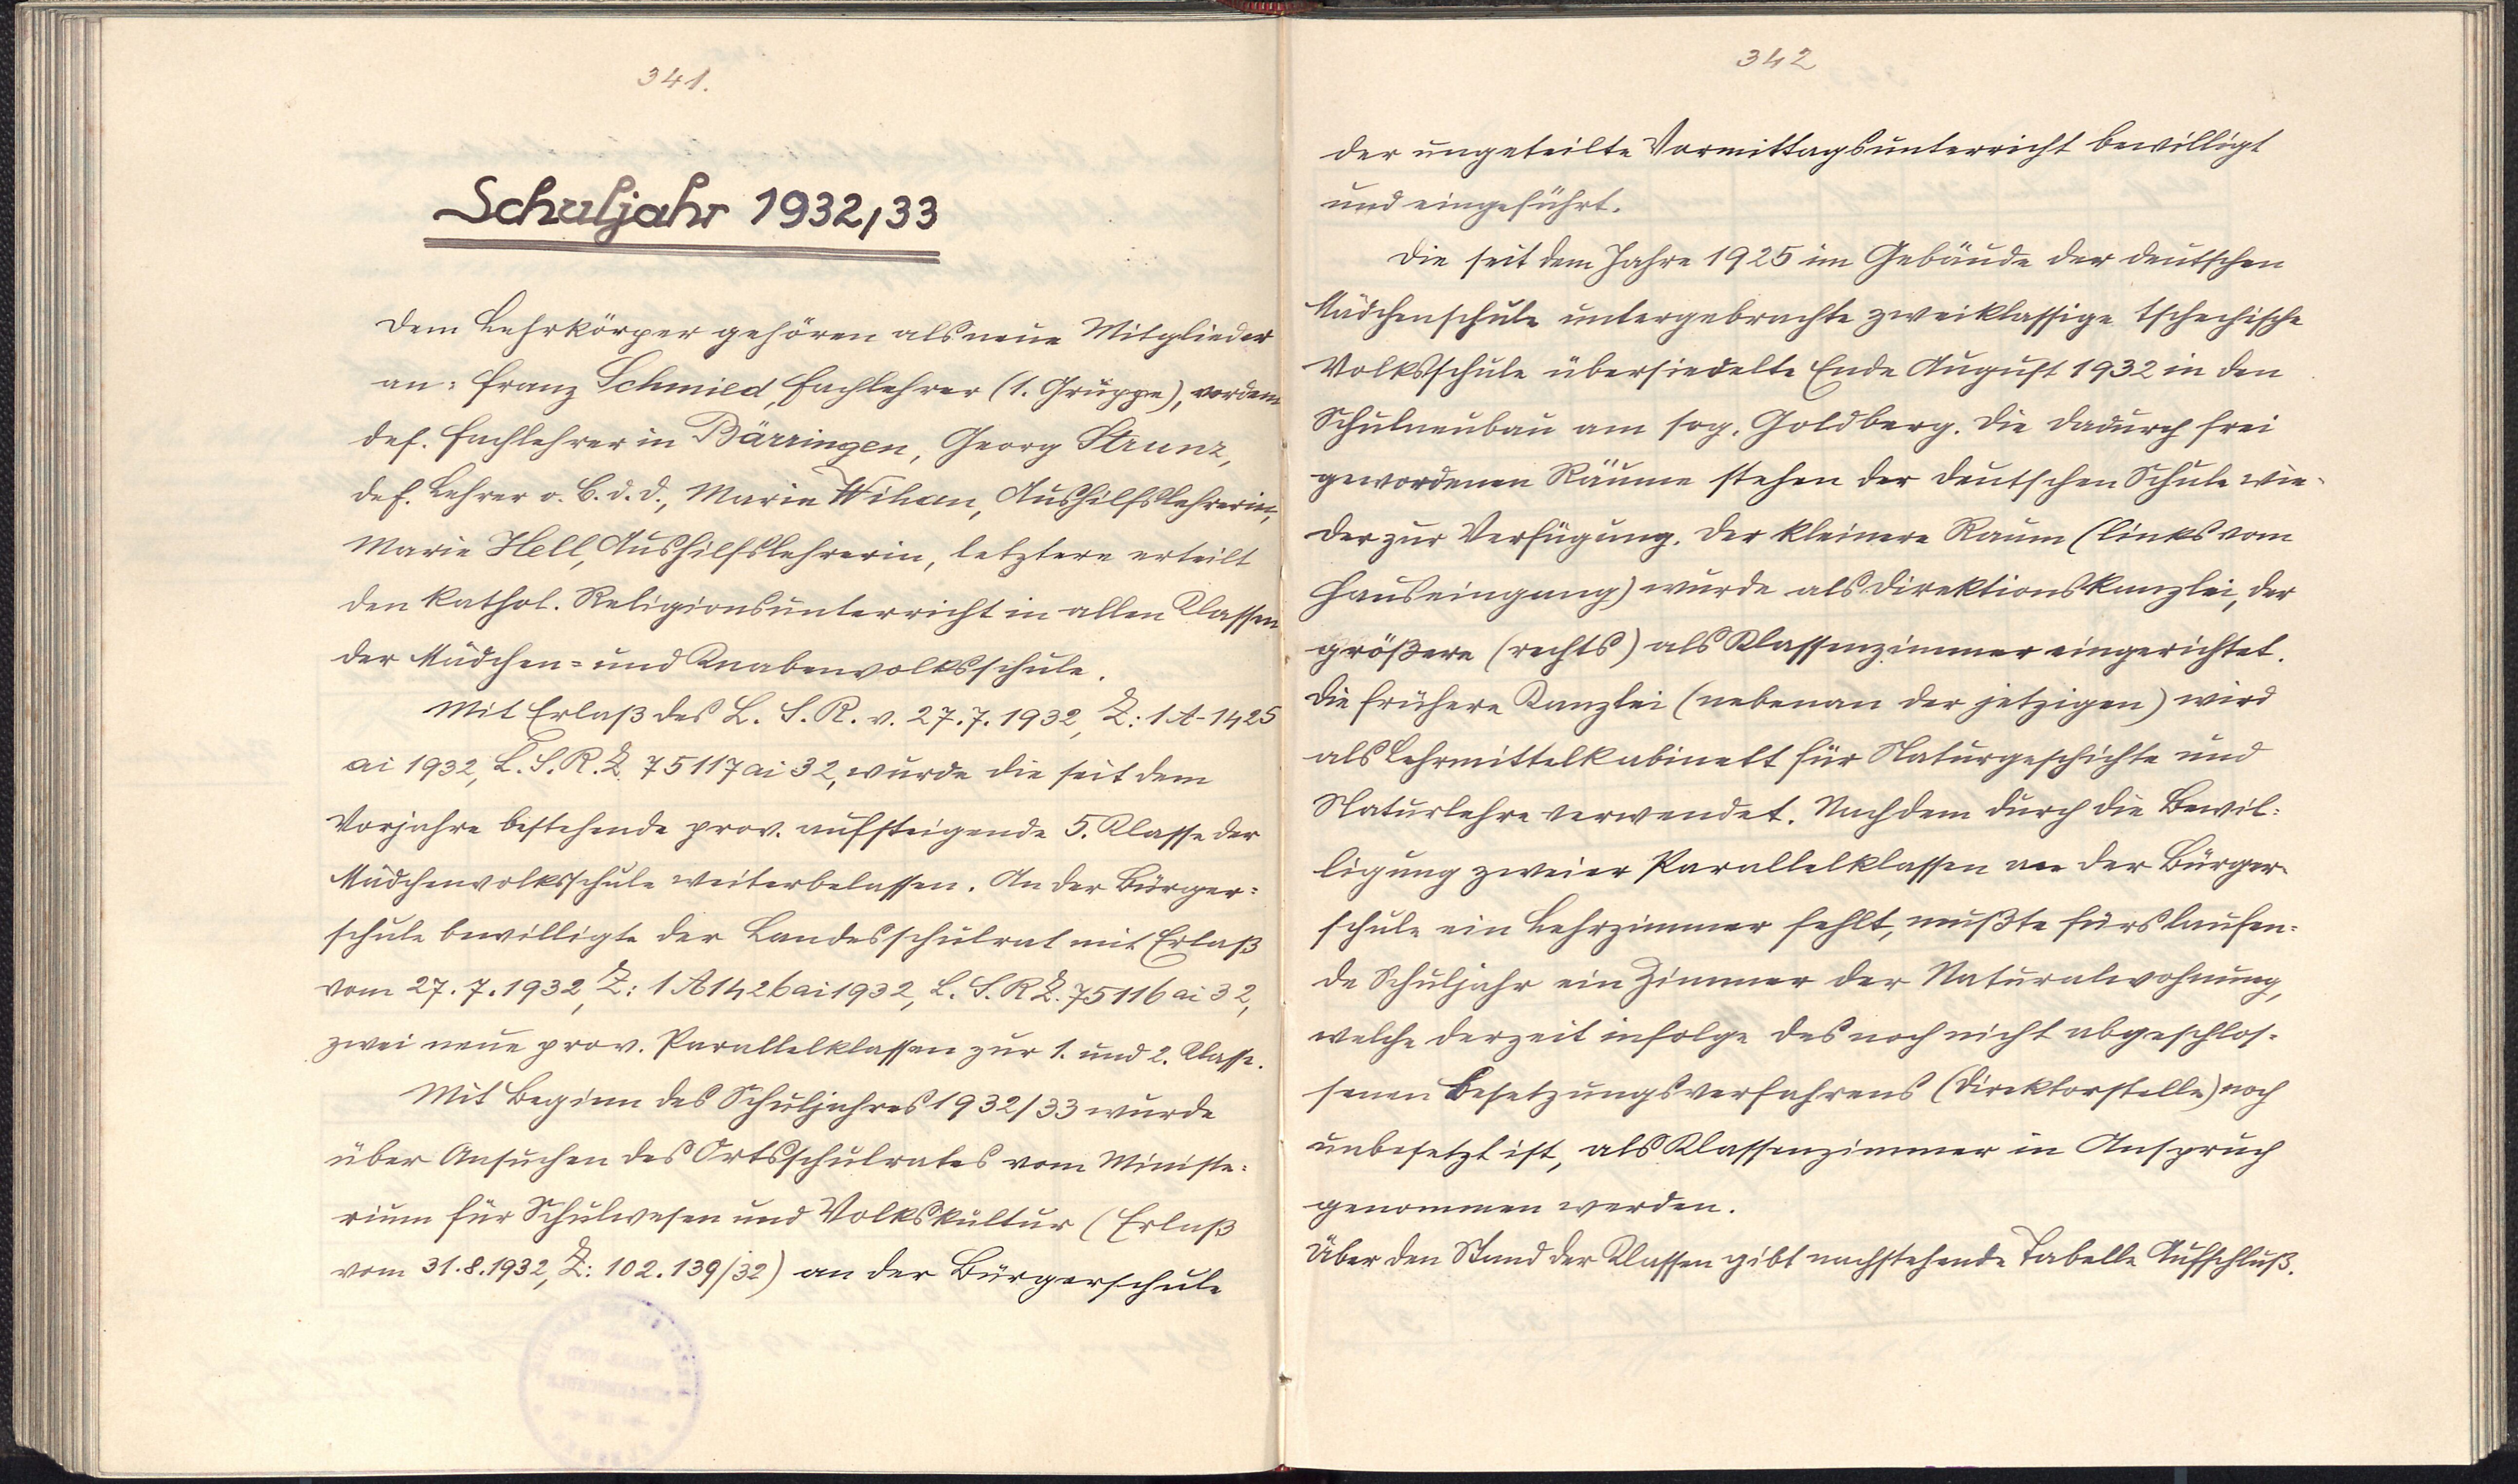 341.
Schuljahr 1932/33
Dem Lehrkörper gehören als neue Mitglieder
an: Franz Schmied, Fachlehrer (1. Gruppe), vordem
def. Fachlehrer in Bärringen, Georg Strunz,
def. Lehrer o. b. d. D., Marie Wihan, Aushilfslehrerin,
Marie Hell, Aushilfslehrerin, letztere erteilt
den kathol. Religionsunterricht in allen Klassen
der Mädchen= und Knabenvolksschule.
Mit Erlaß des L. S. R. v. 27.7.1932, Z: 1A-1425
ai 1932, L. S. R. Z. 75117 ai 32, wurde die seit dem
Vorjahre bestehende prov. aufsteigende 5. Klasse der
Mädchenvolksschule weiterbelassen. An der Bürger=
schule bewilligte der Landesschulrat mit Erlaß
vom 27.7.1932, Z: 1A1426 ai 1932, L. S. R Z. 75116 ai 32,
zwei neue prov. Parallelklassen zur 1. und 2. Klasse.
Mit Beginn des Schuljahres 1932/33 wurde
über Ansuchen des Ortsschulrates vom Ministe=
rium für Schulwesen und Volkskultur (Erlaß
vom 31.8.1932, Z: 102.139/32) an der Bürgerschule
342
der ungeteilte Vormittagsunterricht bewilligt
und eingeführt.
Die seit dem Jahre 1925 im Gebäude der deutschen
Mädchenschule untergebrachte zweiklassige tschechische
Volksschule übersiedelte Ende August 1932 in den
Schulneubau am sog. Goldberg. Die dadurch frei
gewordenen Räume stehen der deutschen Schule wie-
der zur Verfügung. Der kleinere Raum (links vom
Hauseingang) wurde als Direktionskanzlei, der
größere (rechts) als Klassenzimmer eingerichtet.
Die frühere Kanzlei (nebenan der jetzigen) wird
als Lehrmittelkabinett für Naturgeschichte und
Naturlehre verwendet. Nachdem durch die Bewil=
ligung zweier Parallelklassen an der Bürger-
schule ein Lehrzimmer fehlt, mußte fürs laufen=
de Schuljahr ein Zimmer der Naturalwohnung,
welche derzeit infolge des noch nicht abgeschlos-
senen Besetzungsverfahrens (Direktorstelle) noch
unbesetzt ist, als Klassenzimmer in Anspruch
genommen werden.
Über den Stand der Klassen gibt nachstehende Tabelle Aufschluß.